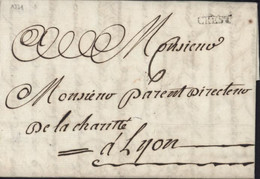 CREST
Monsieur
Monsieur Parent Directeur
De la charitté
à Lyon